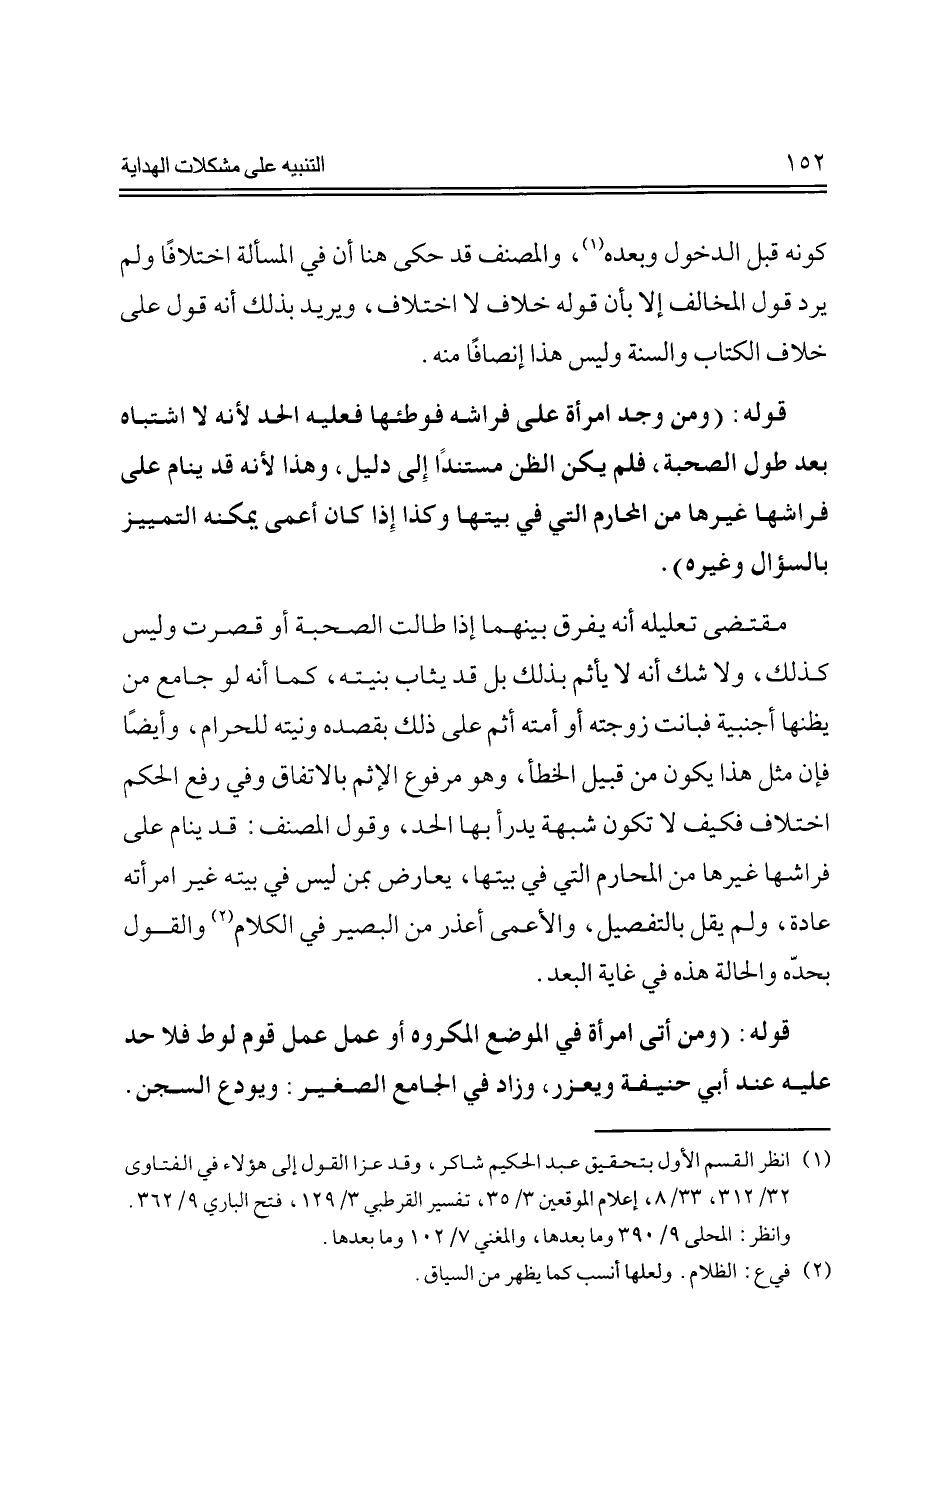 ١٥٢ التنبيه على مشكلات الهداية
كونه قبل الدخول وبعده(١)، والمصنف قد حكى هنا أن في المسألة اختلافًا ولم
يرد قول المخالف إلا بأن قوله خلاف لا اختلاف، ويريد بذلك أنه قول على
خلاف الكتاب والسنة وليس هذا إنصافًا منه.
قوله: (ومن وجد امرأة على فراشه فوطئها فعليه الحد لأنه لا اشتباه
بعد طول الصحبة، فلم يكن الظن مستندًا إلى دليل، وهذا لأنه قد ينام على
فراشها غيرها من المحارم التي في بيتها وكذا إذا كان أعمى يمكنه التمييز
بالسؤال وغيره).
مقتضى تعليله أنه يفرق بينهما إذا طالت الصحبة أو قصرت وليس
كذلك، ولا شك أنه لا يأثم بذلك بل قد يثاب بنيته، كما أنه لو جامع من
يظنها أجنبية فبانت زوجته أو أمته أثم على ذلك بقصده ونيته للحرام، وأيضًا
فإن مثل هذا يكون من قبيل الخطأ، وهو مرفوع الإثم بالاتفاق وفي رفع الحكم
اختلاف فكيف لا تكون شبهة يدرأ بها الحد، وقول المصنف: قد ينام على
فراشها غيرها من المحارم التي في بيتها، يعارض بمن ليس في بيته غير امرأته
عادة، ولم يقل بالتفصيل، والأعمى أعذر من البصير في الكلام(٢) والقول
بحدّه والحالة هذه في غاية البعد.
قوله: (ومن أتى امرأة في الموضع المكروه أو عمل عمل قوم لوط فلا حد
عليه عند أبي حنيفة ويعزر، وزاد في الجامع الصغير: ويودع السجن.
(١) انظر القسم الأول بتحقيق عبد الحكيم شاكر، وقد عزا القول إلى هؤلاء في الفتاوى
٣٢/ ٣١٢، ٣٣/ ٨، إعلام الموقعين ٣/ ٣٥، تفسير القرطبي ٣/ ١٢٩، فتح الباري ٩/ ٣٦٢.
وانظر: المحلى ٩/ ٣٩٠ وما بعدها، والمغني ٧/ ١٠٢ وما بعدها.
(٢) في ع: الظلام. ولعلها أنسب كما يظهر من السياق.